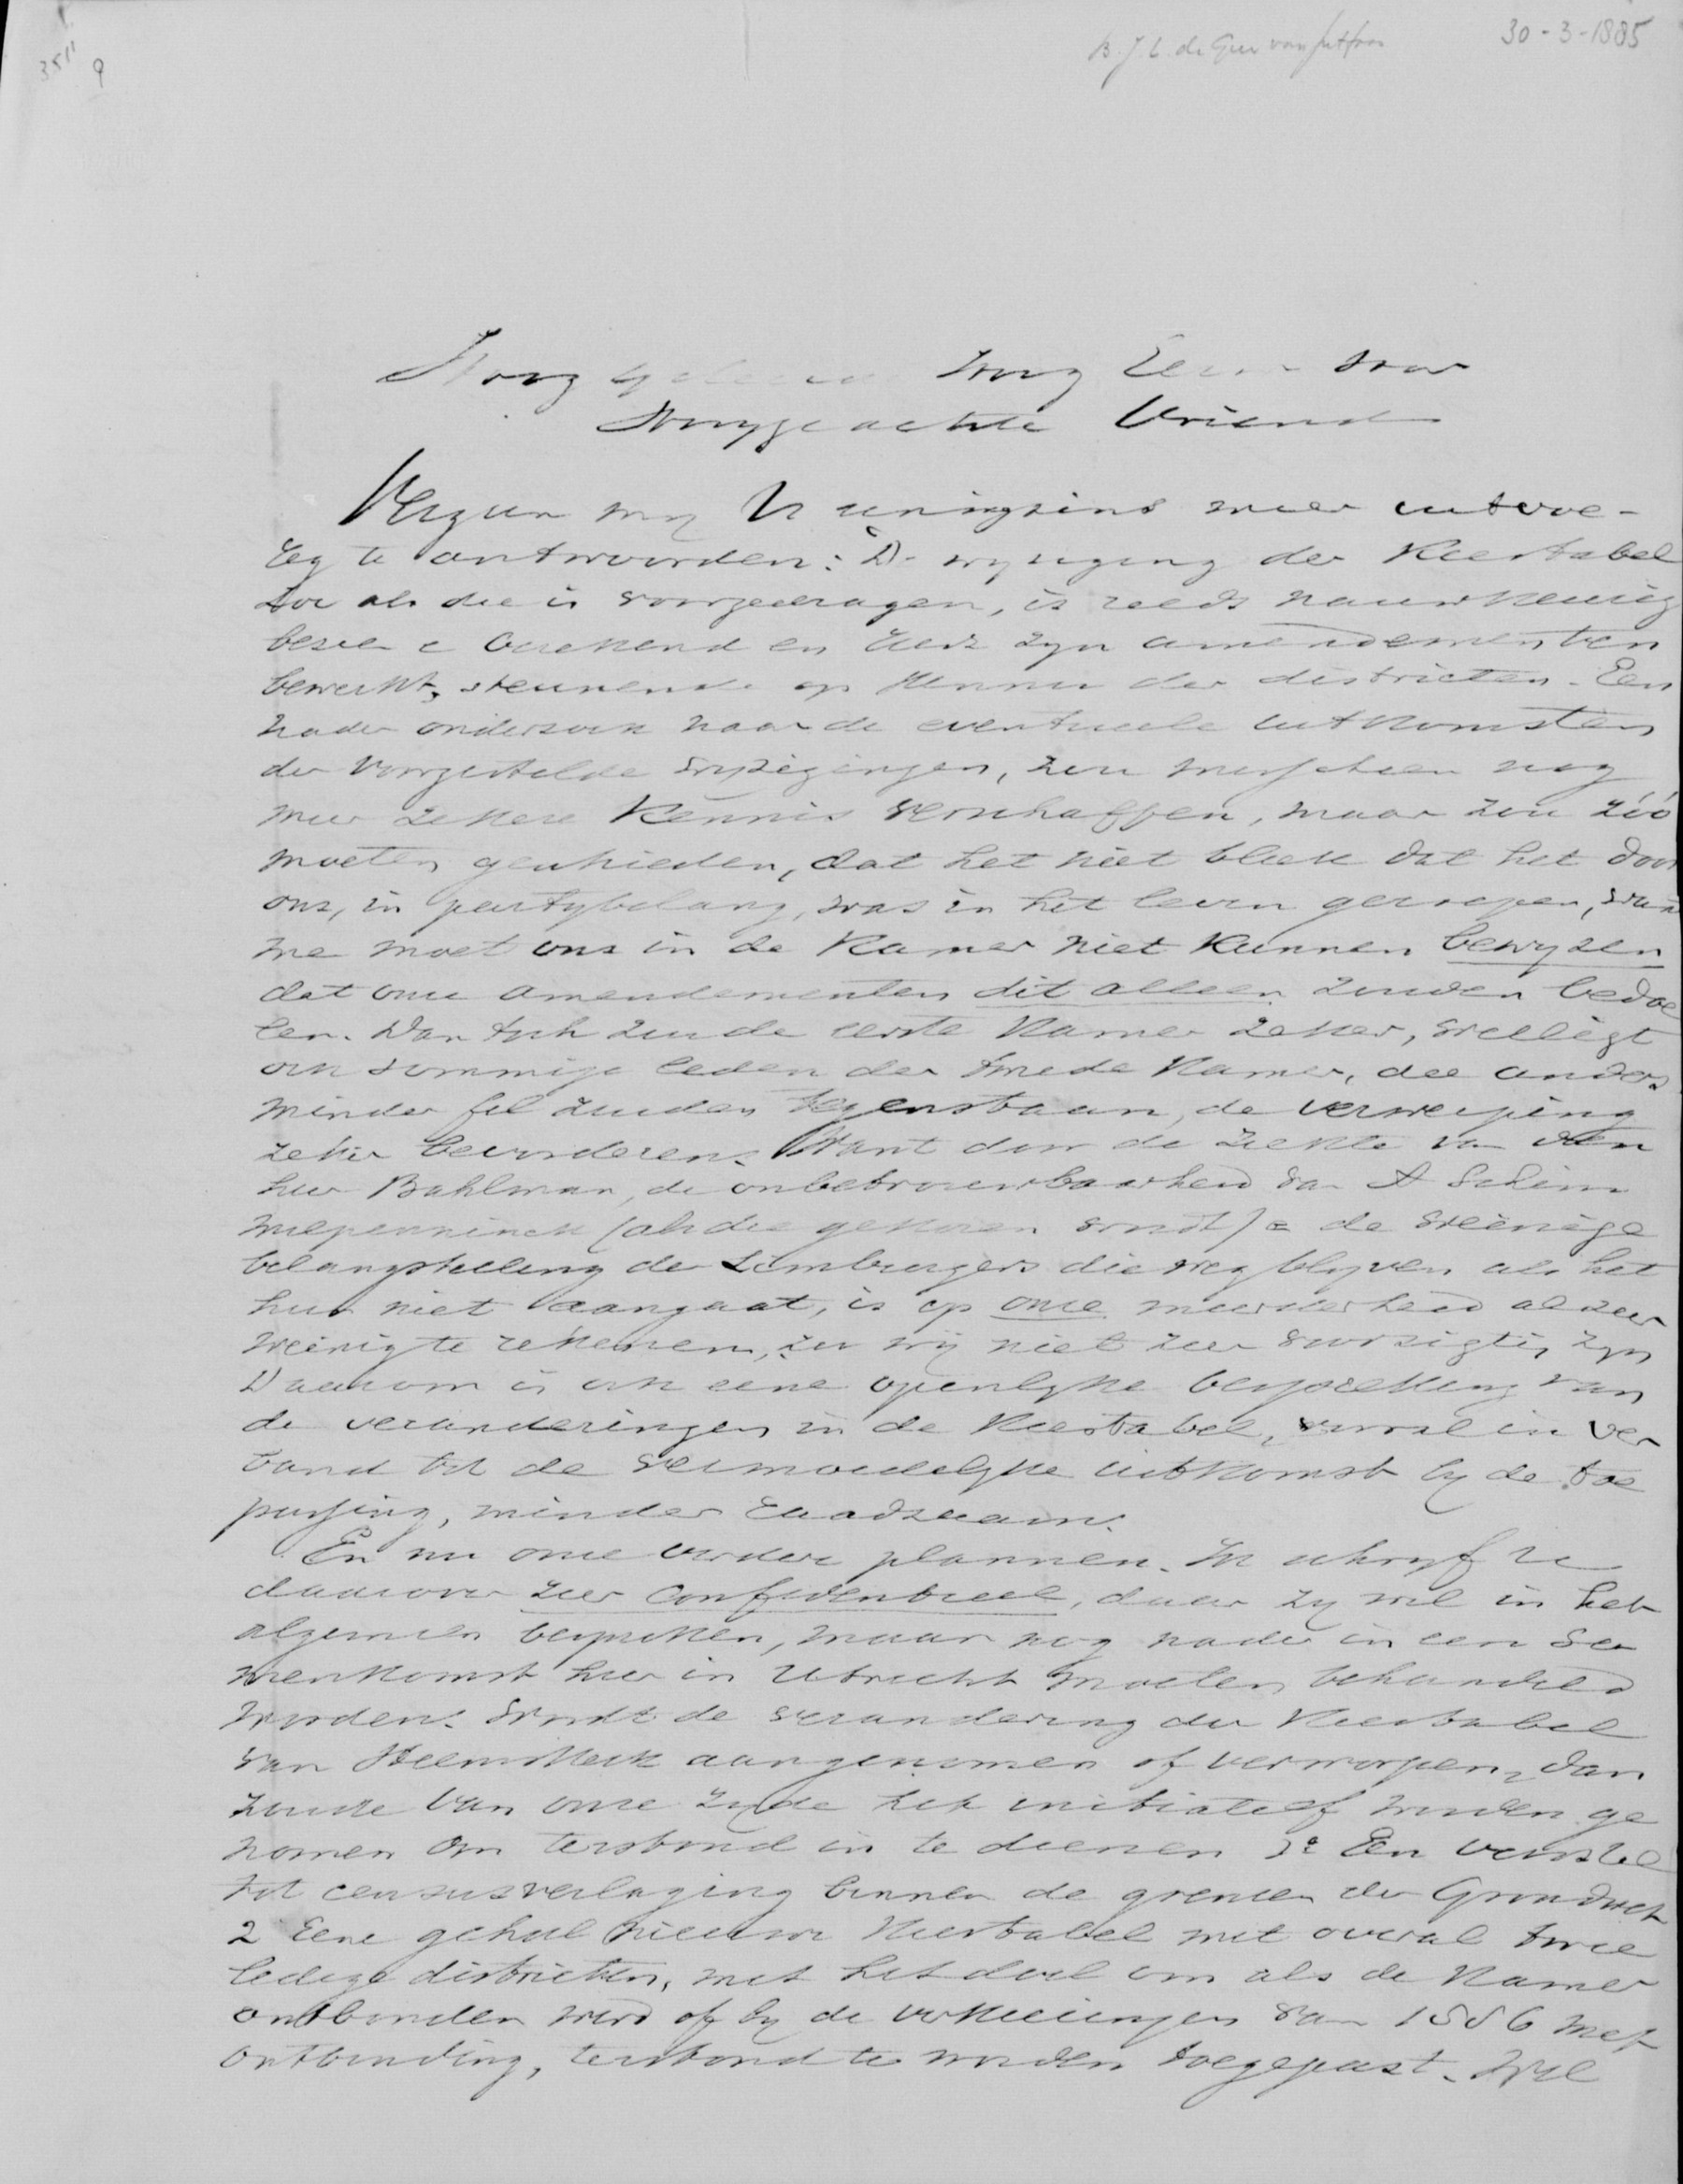 B. J. L. de Geer van Jutfaas 30-3-1885
3511 9
Hoog Hoog
Hooggeachte Vriend
Vergun my U eenigzins meer uitvoe-
rig te antwoorden: De wyziging der Kiestabel
zoo als die is voorgedragen, is reeds nauwkeurig
berekend en zyn amendementen
bewerkt, steunende op kennis der districten. Een
nader onderzoek naar de eventueele uitkomsten
der voorgestelde wyzigingen, zou misschien nog
meer zekere kennis verschaffen, maar zou zóó
moeten geschieden, dat het niet bleek dat het door
ons, in partybelang, was in het leven geroepen, want
me moet ons in de Kamer niet kunnen bewyzen
dat onze amendementen dit alleen zouden bedoe
len. Dan toch zou de eerste Kamer zeker, wellicgt
ook sommige leden der tweede Kamer, die anders
minder fel zouden tegenstaan, de verwerping
zeker bevorderen. Want door de ziekte van den
heer Bahlman, de onbetrouwbaarheid van A Schim
melpenninck (als die gekozen wordt) = de weinige
belangstelling der Limburgers die wegblyven als het
hun niet aangaat, is op onze meerderheid al zeer
weinig te rekenen, zoo wij niet zeer voorzigtig zyn
Daarom is ook eene openlyke bespreking van
de veranderingen in de Kiestabel, vooral in ver
band tot de vermoedelyke uitkomst by de toe
passing, minder raadzaam.
En nu onze verdere plannen. Ik schryf U
daarover zeer confidentieel, daar zy wel in het
algemeen besproken, maar nog nader in een sa
menkomst hier in Utrecht moeten behandeld
worden. Wordt de verandering der Kiestabel
van Heemskerk aangenomen of verworpen, dan
zoude van onze zyde het initiatief worden ge
nomen om terstond in te dienen 1o Een voorstel
tot censusverlaging binnen de grenzen der Grondwet
2 Eene geheel nieuwe Kiestabel met overal twee
ledige districten, met het doel om als de Kamer
ontbonden werd of by de verkiezingen van 1886 met
ontbinding, terstond te worden toegepast. Wyl